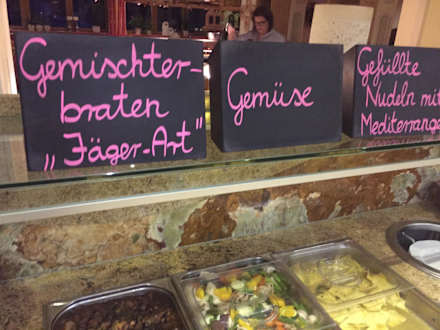 Gemischter-
braten
„Jäger-Art"
Gemüse
Gefüllte
Nudeln mit